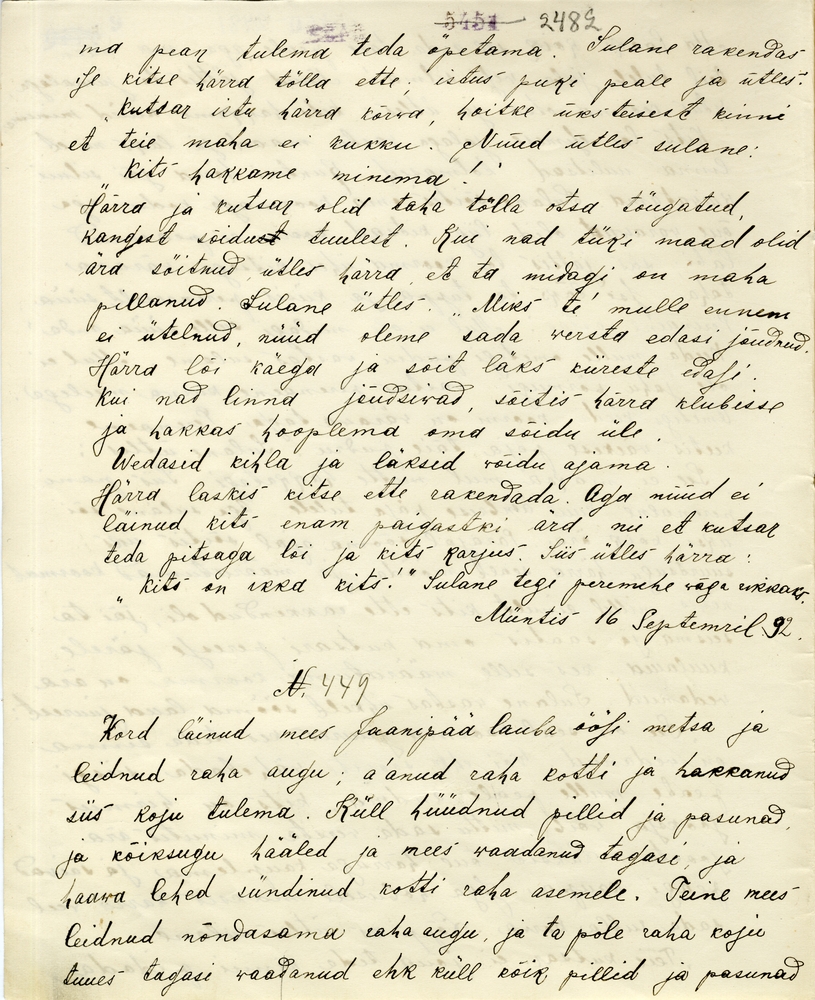 5451 2482
ma pean tulema teda õpetama. Sulane rakendas
se kitse härra tõlla ette, istus puki peale ja ütles:
„Kutsar istu härra kõrwa, hoitke üksteisest kinni
et teie maha ei kukku. Nüüd ütles sulane:
Kits hakkame minema!"
Härra ja kutsar olid taha tõlla otsa tõugatud,
kangest sõidust tuulest. Kui nad tüki maad olid
ära sõitnud, ütles härra, et ta midagi on maha
pillanud. Sulane ütles. „Miks te mulle ennem
ei ütelnud, nüüd oleme sada wersta edasi jõudnud.
Härra lõi käega ja sõit läks kiireste edasi.
Kui nad linna jõudsiwad, sõitis härra klubisse
ja hakkas hooplema oma sõidu üle.
Wedasid kihla ja läksid wõidu ajama.
Härra laskis kitse ette rakendada. Aga nüüd ei
läinud kits enam paigastki ära nii et kutsar
teda pitsaga lõi ja kits karjus. Siis ütles härra:
„Kits on ikka kits!" Sulane tegi peremehe wäga rikkaks.
Müntis 16 Septemril 92.
N. 449
Kord läinud mees Jaanipää lauba öösi metsa ja
leidnud raha augu; a'anud raha kotti ja hakkanud
siis koju tulema. Küll hüüdnud pillid ja pasunad,
ja kõiksugu hääled ja mees waadanud tagasi, ja
haawa lehed sündinud kotti raha asemele. Teine mees
leidnud nõndasama raha augu, ja ta põle raha koju
tuues tagasi waadanud ehk küll kõik pillid ja pasunad